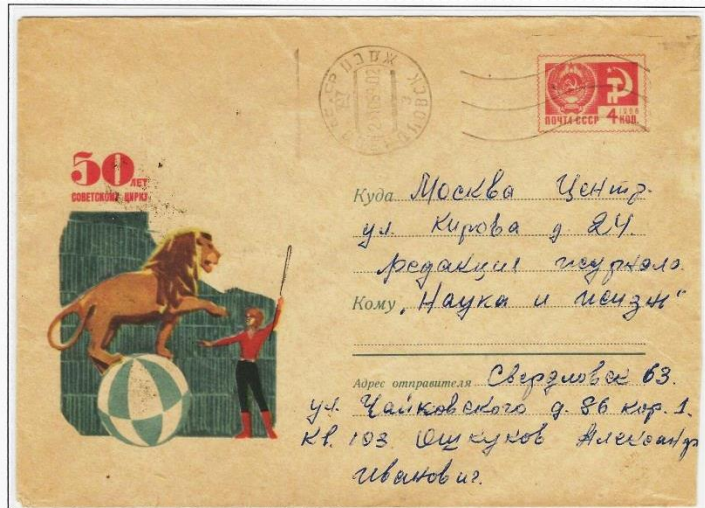 50 ЛЕТ
СОВЕТСКОМУ ЦИРКУ
ПОЧТА СССР 4 КОП.
1966
Куда Москва Центр.
ул. Кирова д. 24.
редакция журнала
Кому „Наука и жизнь"
Адрес отправителя Свердловск 63.
ул. Чайковского д. 86 кор. 1.
кв. 103. Ошкуков Александр
Иванович.